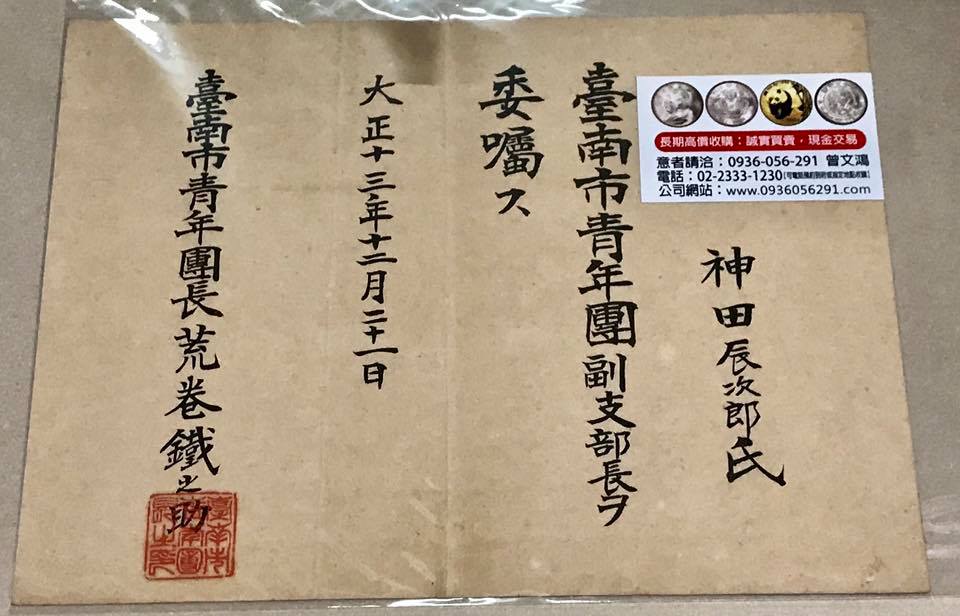 神田辰次郎氏
臺南市青年團副支部長ヲ
委囑ス
大正十三年十二月二十一日
臺南市青年團長荒巻鐵之助
長期高價收購：誠實買賣，現金交易
意者請洽：0936-056-291 曾文鴻
電話：02-2333-1230
公司網站：www.0936056291.com